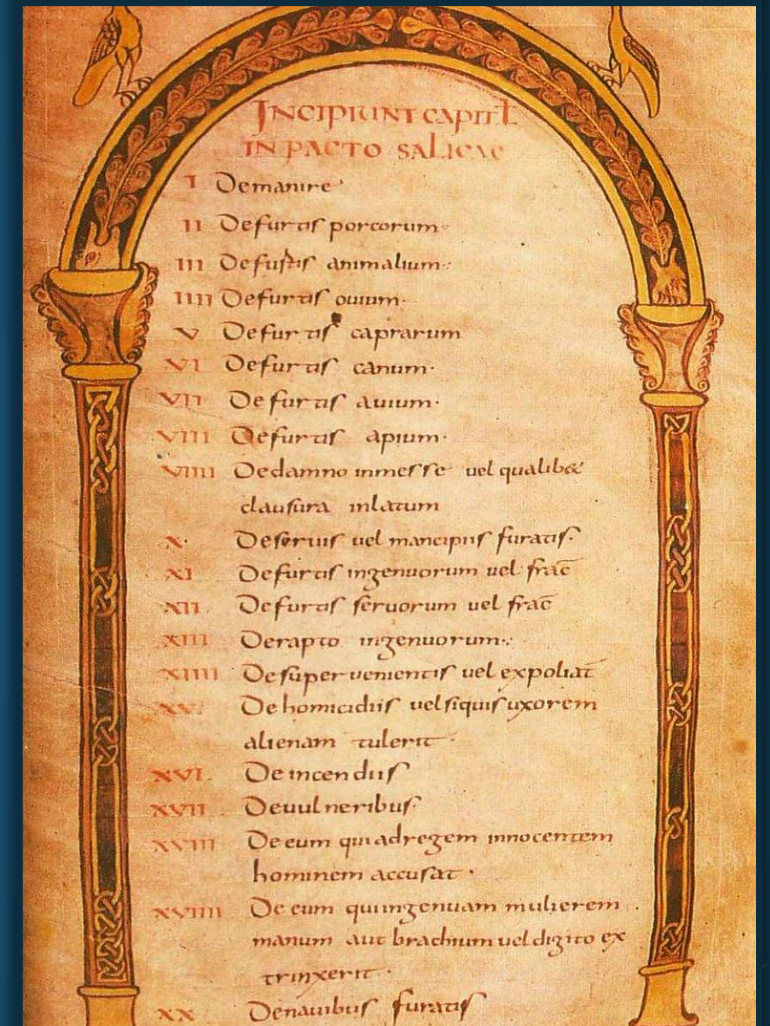 INCIPIUNT CAPITL
IN PACTO SALICAE
I Demanire
II Defurtis porcorum·
III Defurtis animalium·
IIII Defurtis ouium·
V Defurtis caprarum
VI Defurtis canum·
VII Defurtis auium·
VIII Defurtis apium·
VIIII Dedamno inmesse vel qualibet
clausura inlatum
X· Deseruis vel mancipiis furatis·
XI Defurtis ingenuorum vel frac̄
XII· Defurtis seruorum vel frac̄
XIII Derapto ingenuorum·
XIIII Desuperuenientis vel expoliat̄
XV· Dehomicidiis velsiquis uxorem
alienam tulerit·
XVI· Deincendiis
XVII Deuulneribus·
XVIII Deeum quiadregem innocentem
hominem accusat·
XVIIII De eum quiingenuam mulierem
manum aut brachium vel digito ex
trinxerit·
XX Denauibus furatis